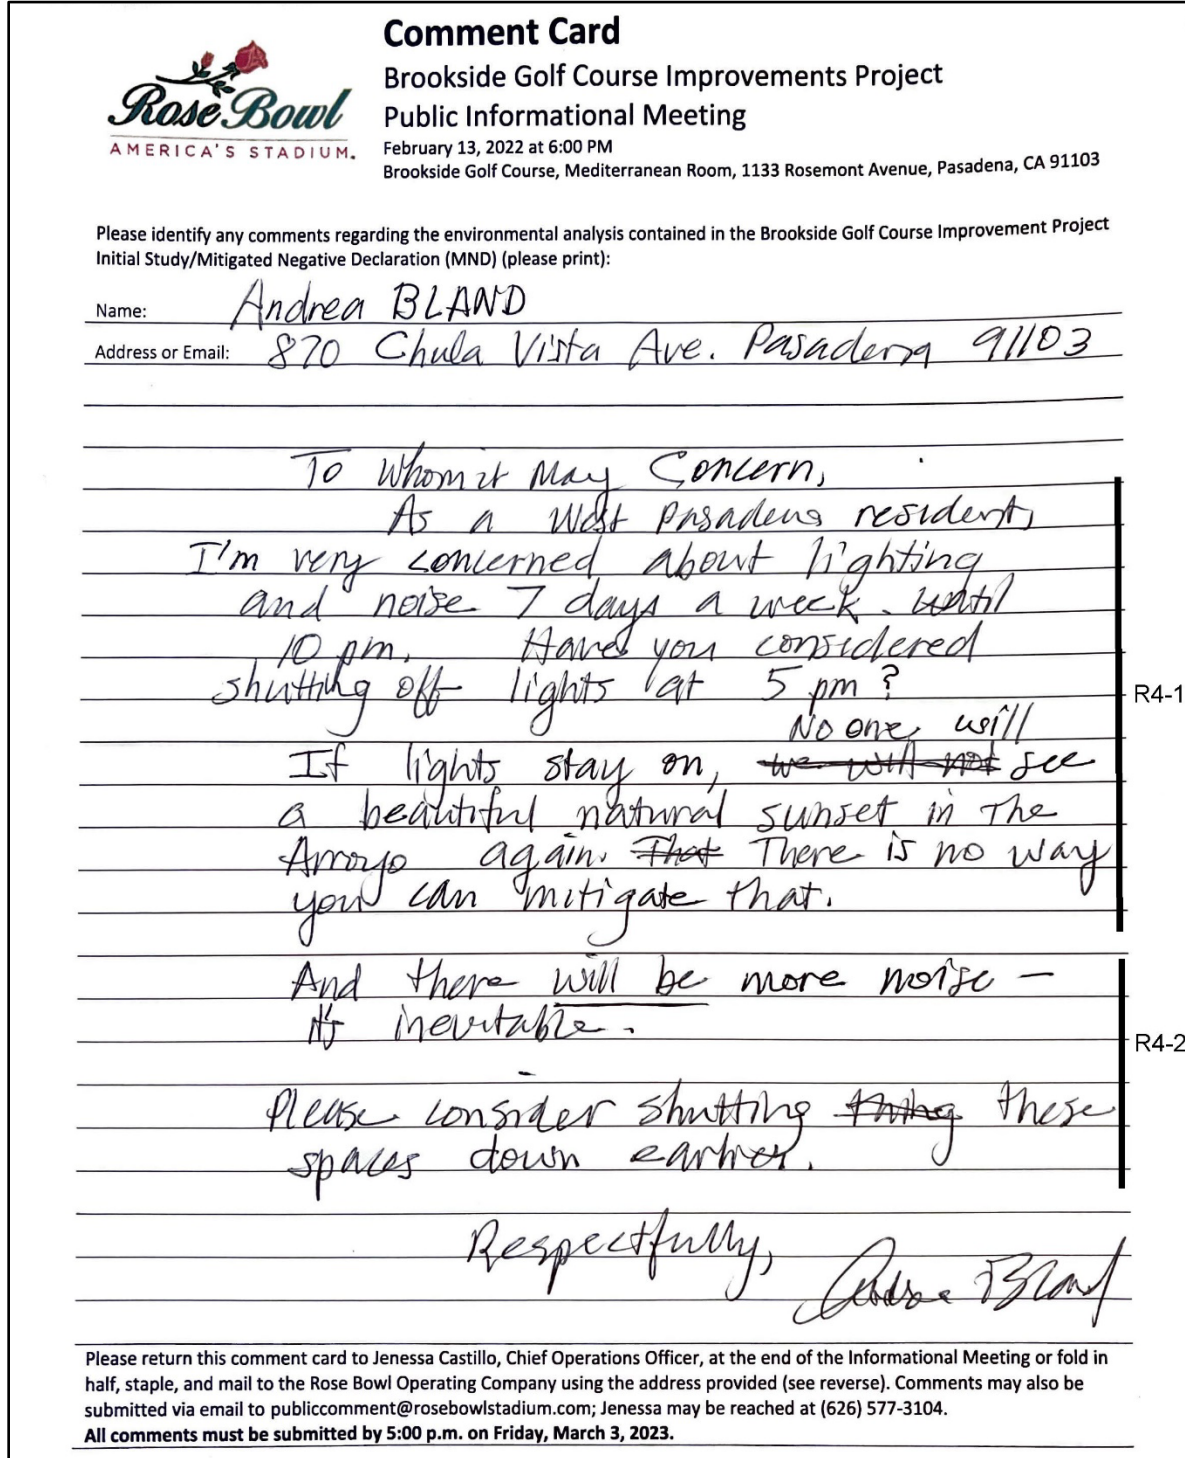 Rose Bowl
AMERICA'S STADIUM.
Comment Card
Brookside Golf Course Improvements Project
Public Informational Meeting
February 13, 2022 at 6:00 PM
Brookside Golf Course, Mediterranean Room, 1133 Rosemont Avenue, Pasadena, CA 91103
Please identify any comments regarding the environmental analysis contained in the Brookside Golf Course Improvement Project
Initial Study/Mitigated Negative Declaration (MND) (please print):
Name: Andrea BLAND
Address or Email: 870 Chula Vista Ave. Pasadena 91103
To Whom it May Concern,
As a West Pasadena resident,
I'm very concerned about lighting
and noise 7 days a week until
10 pm. Have you considered
shutting off lights at 5 pm?
R4-1
No one will
If lights stay on, we will not see
a beautiful natural sunset in The
Arroyo again. That There is no way
you can mitigate that.
And there will be more noise —
it's inevitable.
R4-2
Please consider shutting these
spaces down earlier.
Respectfully, Andrea Bland
Please return this comment card to Jenessa Castillo, Chief Operations Officer, at the end of the Informational Meeting or fold in
half, staple, and mail to the Rose Bowl Operating Company using the address provided (see reverse). Comments may also be
submitted via email to publiccomment@rosebowlstadium.com; Jenessa may be reached at (626) 577-3104.
All comments must be submitted by 5:00 p.m. on Friday, March 3, 2023.